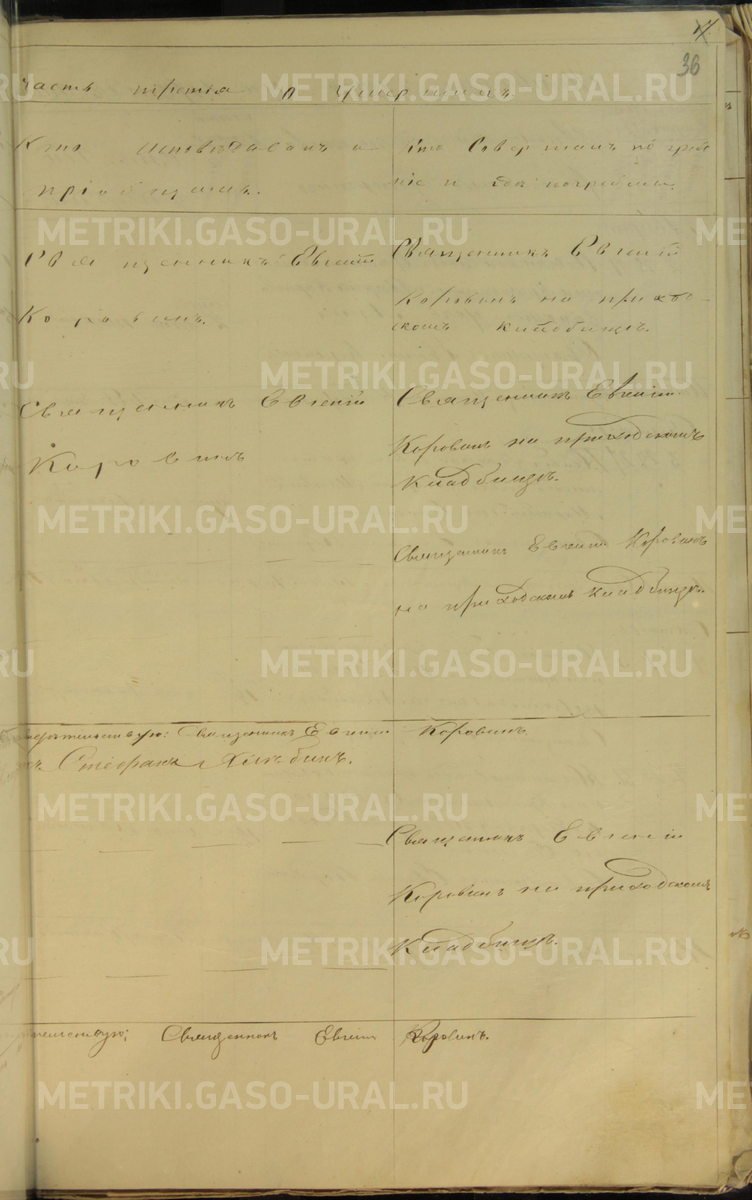 36
часть третія о умершихъ.
Кто исповѣдовалъ и
пріобщалъ.
Кто Совершалъ погребе
ніе и гдѣ погребены.
Священникъ Евгеній
Коровинъ.
Священникъ Евгеній
Коровинъ на приход
скомъ кладбищѣ.
Священникъ Евгеній
Коровинъ
Священникъ Евгеній
Коровинъ на приходскомъ
Кладбищѣ.
Священникъ Евгеній Коровинъ
на приходскомъ кладбищѣ.
Священникъ Евгеній Коровинъ
Стефанъ
Священникъ Евгеній
Коровинъ на приходскомъ
Кладбищѣ.
Священникъ Евгеній Коровинъ.
METRIKI.GASO-URAL.RU